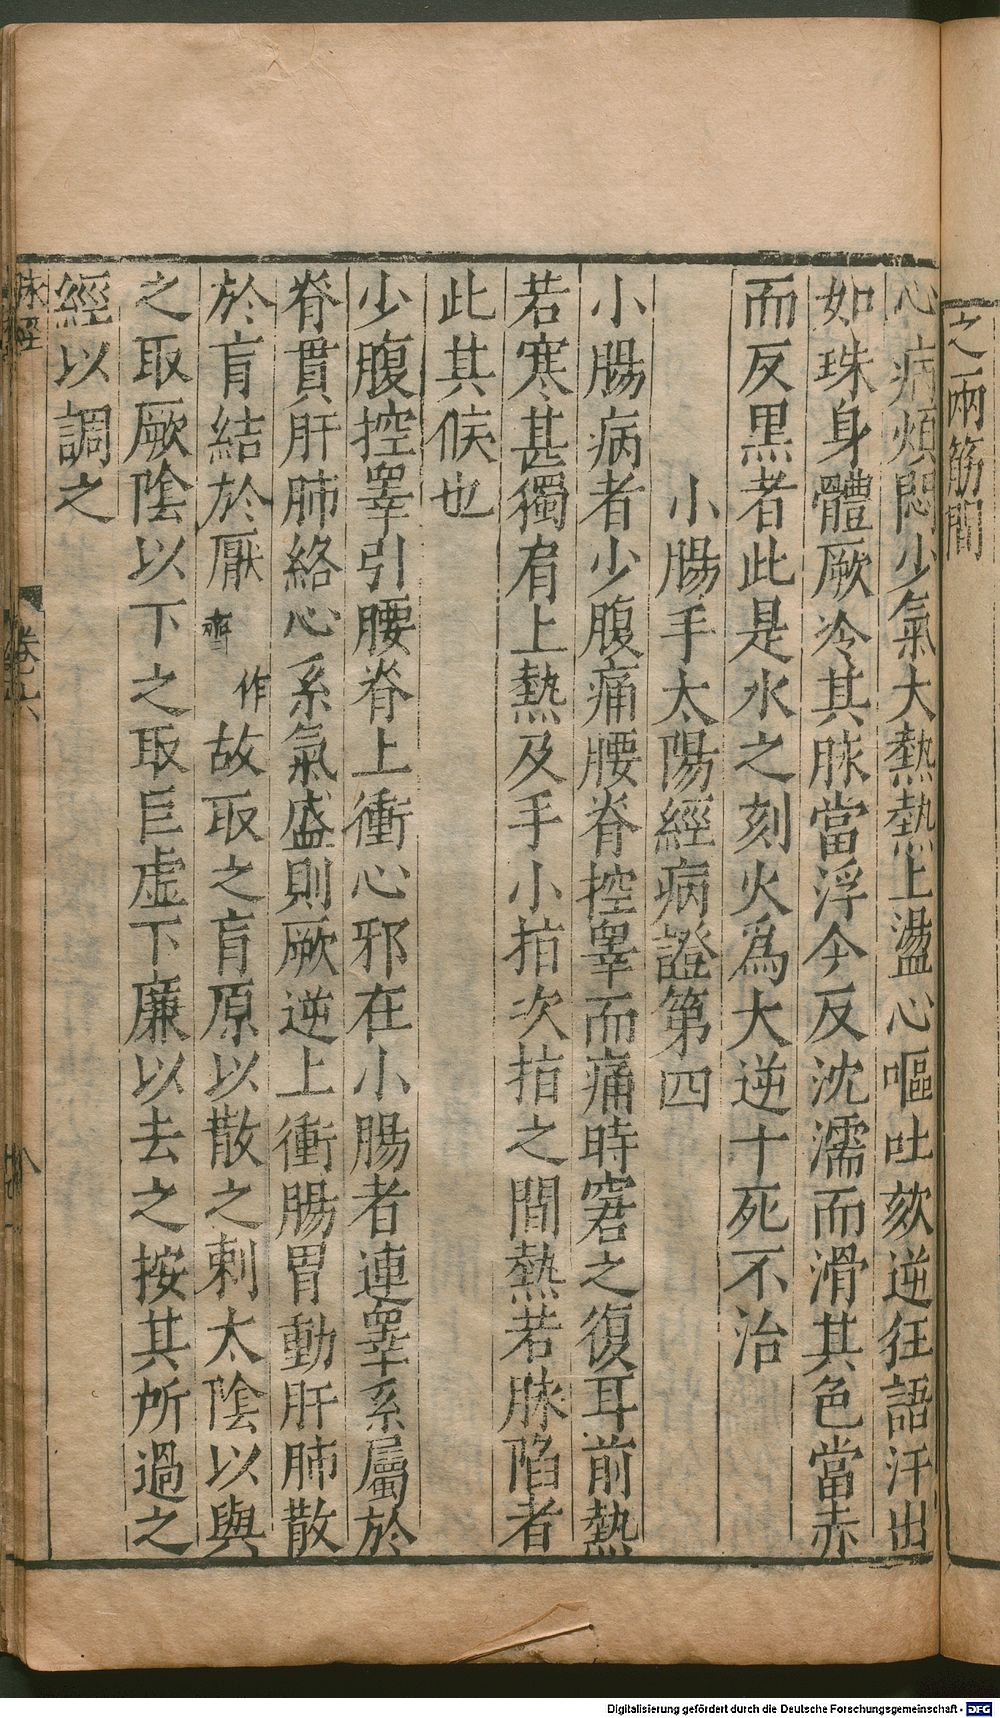 之兩筋間
心病煩悶少氣大熱熱上盪心嘔吐欬逆狂語汗出
如珠身體厥冷其脉當浮今反沈濡而滑其色當赤
而反黑者此是水之刻火爲大逆十死不治
小腸手太陽經病證第四
小腸病者少腹痛腰脊控睪而痛時窘之復耳前熱
若寒甚獨肩上熱及手小指次指之間熱若脉陷者
此其候也
少腹控睪引腰脊上衝心邪在小腸者連睪系屬於
脊貫肝肺絡心系氣盛則厥逆上衝腸胃動肝肺散
於肓結於厭作齊故取之肓原以散之刺太陰以與
之取厥陰以下之取巨虛下廉以去之按其所過之
經以調之
脉經
卷六
八
Digitalisierung gefördert durch die Deutsche Forschungsgemeinschaft - DFG